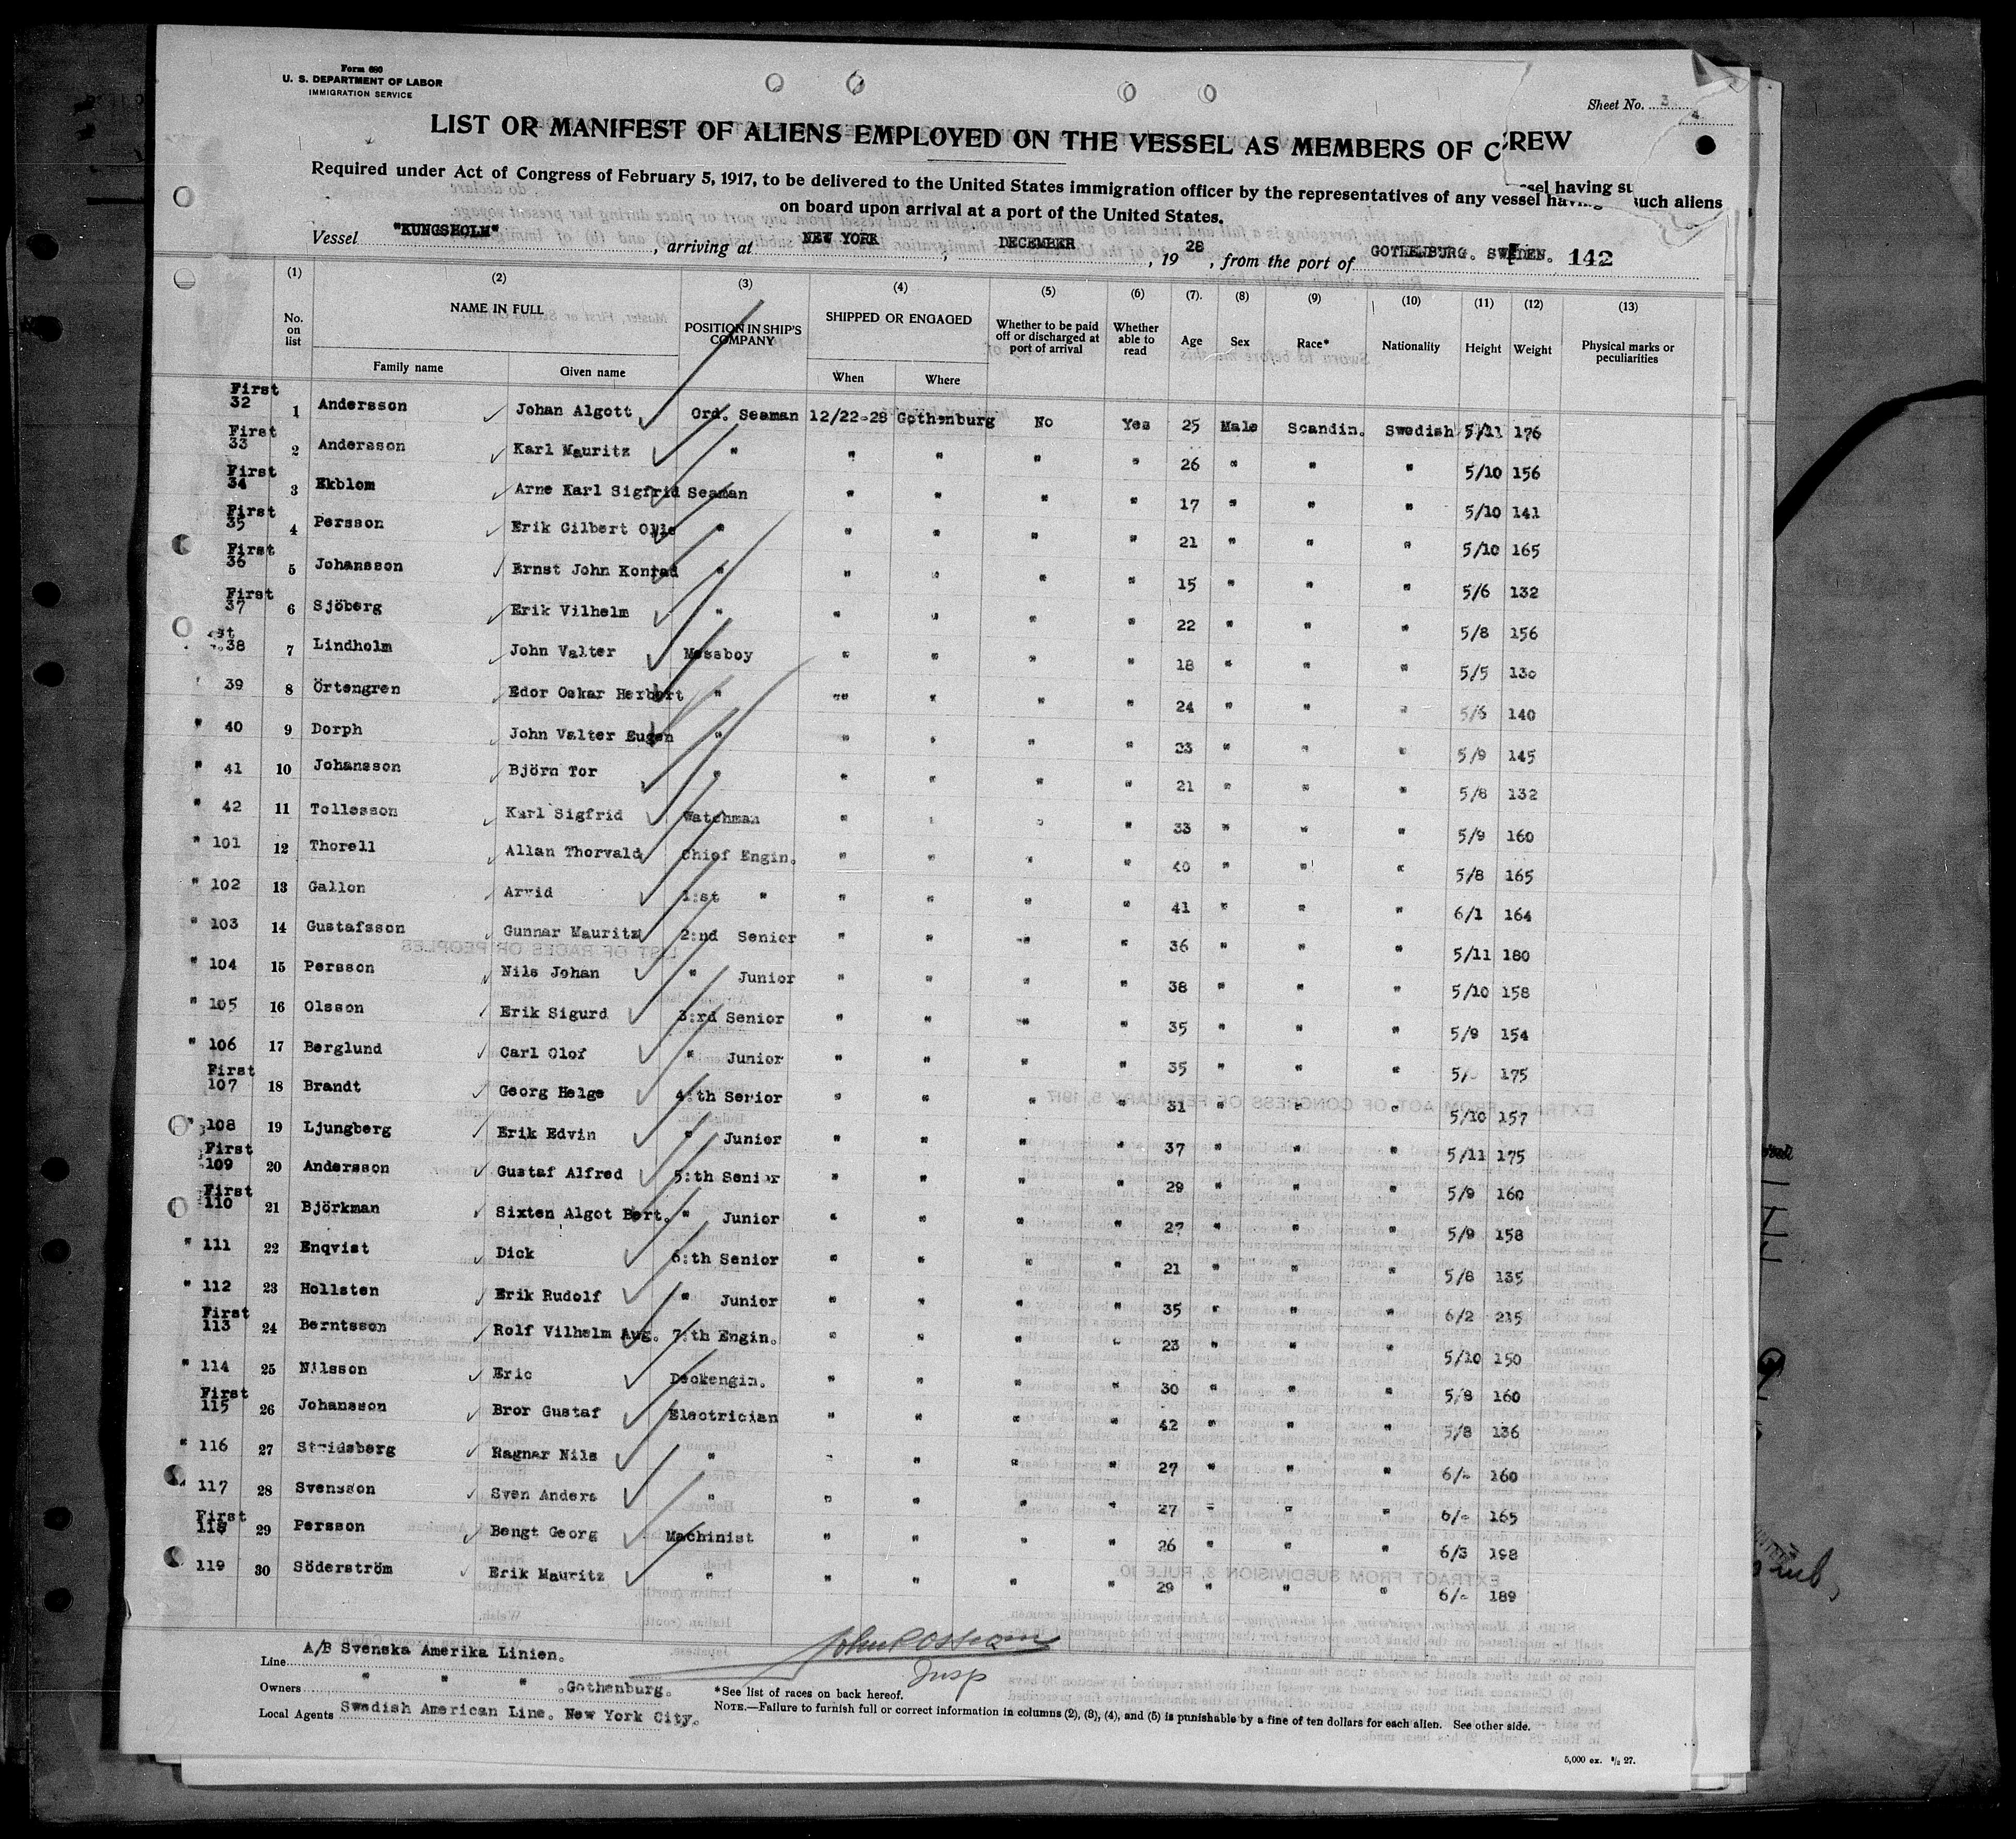 Form 680
U. S. DEPARTMENT OF LABOR
IMMIGRATION SERVICE
Sheet No. 3
4
LIST OR MANIFEST OF ALIENS EMPLOYED ON THE VESSEL AS MEMBERS OF CREW
Required under Act of Congress of February 5, 1917, to be delivered to the United States immigration officer by the representatives of any vessel having such aliens
on board upon arrival at a port of the United States.
Vessel "KUNGSHOLM", arriving at NEW YORK, DECEMBER, 1928, from the port of GOTHENBURG. SWEDEN. 142
(1) (2) (3) (4) (5) (6) (7). (8) (9) (10) (11) (12) (13)
No. on list NAME IN FULL POSITION IN SHIP'S COMPANY SHIPPED OR ENGAGED Whether to be paid off or discharged at port of arrival Whether able to read Age Sex Race* Nationality Height Weight Physical marks or peculiarities
Family name Given name When Where
First 32 1 Andersson Johan Algott Ord. Seaman 12/22-28 Gothenburg No Yes 25 Male Scandin. Swedish 5/11 176
First 33 2 Andersson Karl Mauritz " " " " " 26 " " " 5/10 156
First 34 3 Ekblom Arne Karl Sigfrid Seaman " " " " 17 " " " 5/10 141
First 35 4 Persson Erik Gilbert Olle " " " " " 21 " " " 5/10 165
First 36 5 Johansson Ernst John Konrad " " " " " 15 " " " 5/6 132
First 37 6 Sjöberg Erik Vilhelm " " " " " 22 " " " 5/8 156
38 7 Lindholm John Valter Messboy " " " " 18 " " " 5/5 130
39 8 Örtengren Edor Oskar Herbert " " " " " 24 " " " 5/6 140
" 40 9 Dorph John Valter Eugen " " " " " 23 " " " 5/9 145
" 41 10 Johansson Björn Tor " " " " " 21 " " " 5/8 132
" 42 11 Tollesson Karl Sigfrid Watchman " " " " 33 " " " 5/9 160
" 101 12 Thorell Allan Thorvald Chief Engin. " " " " 40 " " " 5/8 165
" 102 13 Gallon Arvid 1:st " " " " " 41 " " " 6/1 164
" 103 14 Gustafsson Gunnar Mauritz 2:nd Senior " " " " 36 " " " 5/11 180
" 104 15 Persson Nils Johan " Junior " " " " 38 " " " 5/10 158
" 105 16 Olsson Erik Sigurd 3:rd Senior " " " " 35 " " " 5/9 154
" 106 17 Berglund Carl Olof " Junior " " " " 35 " " " 5/ 175
First 107 18 Brandt Georg Helge 4:th Senior " " " " 31 " " " 5/10 157
" 108 19 Ljungberg Erik Edvin " Junior " " " " 37 " " " 5/11 175
First 109 20 Andersson Gustaf Alfred 5:th Senior " " " " 29 " " " 5/9 160
First 110 21 Björkman Sixten Algot Bert. " Junior " " " " 27 " " " 5/9 158
" 111 22 Enqvist Dick 6:th Senior " " " " 21 " " " 5/8 135
" 112 23 Hollsten Erik Rudolf " Junior " " " " 35 " " " 6/2 215
First 113 24 Berntsson Rolf Vilhelm Aug. 7:th Engin. " " " " 23 " " " 5/10 150
" 114 25 Nilsson Eric Deckengin. " " " " 30 " " " 5/8 160
First 115 26 Johansson Bror Gustaf Electrician " " " " 42 " " " 5/8 136
" 116 27 Stridsberg Ragnar Nils " " " " " 27 " " " 6/- 160
117 28 Svensson Sven Anders " " " " " 27 " " " 6/- 165
First 118 29 Persson Bengt Georg Machinist " " " " 26 " " " 6/3 198
119 30 Söderström Erik Mauritz " " " " " 29 " " " 6/- 189
Line A/B Svenska Amerika Linien.
Owners " " " .Gothenburg.
Local Agents Swedish American Line. New York City.
Insp
*See list of races on back hereof.
NOTE.—Failure to furnish full or correct information in columns (2), (3), (4), and (5) is punishable by a fine of ten dollars for each alien. See other side.
5,000 ex. 9/2 27.